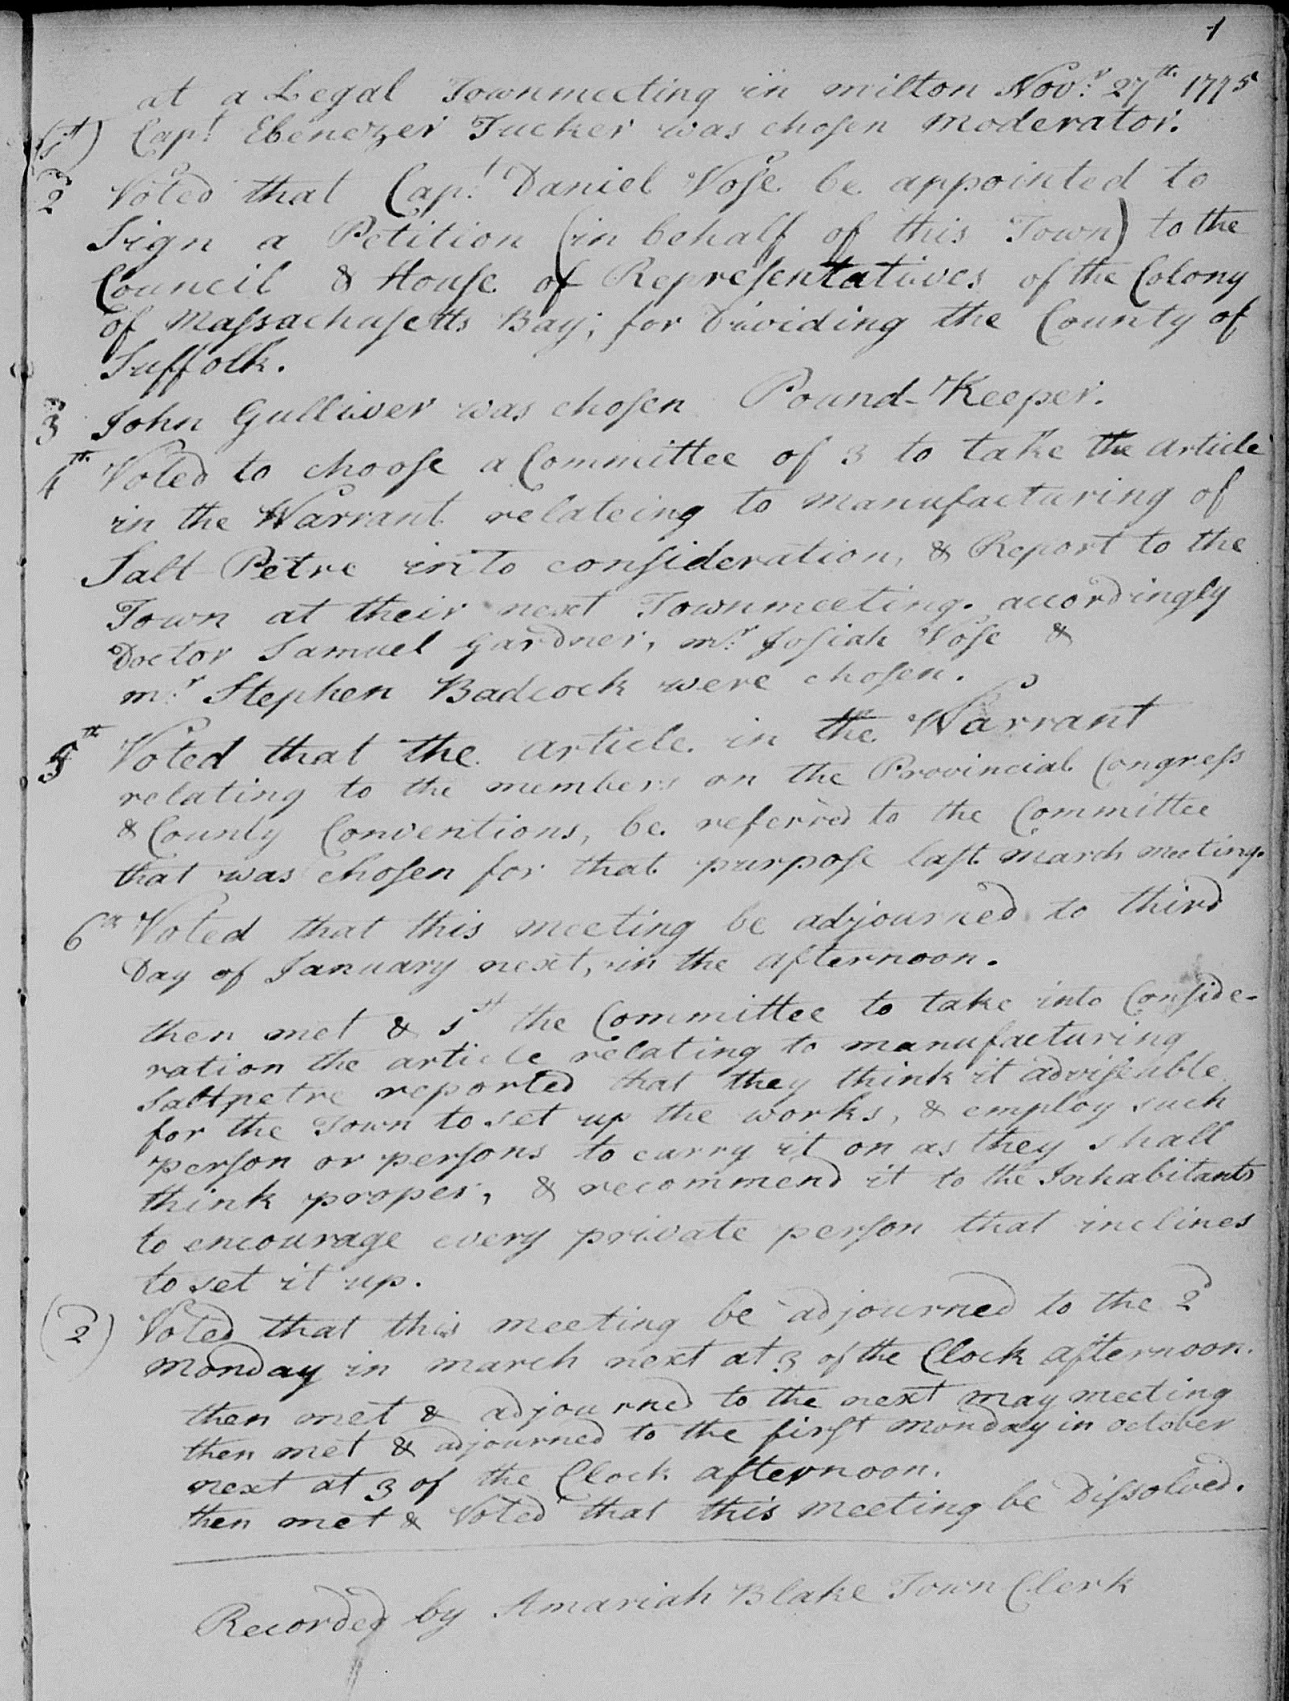 1
at a Legal Townmeeting in milton Nov.r 27th 1775
(1st) Capt Ebenezer Tucker was chosen moderator.
2d Voted that Capt Daniel Vose be appointed to
Sign a Petition (in behalf of this Town) to the
Council & House of Representatives of the Colony
of Massachusetts Bay; for Dividing the County of
Suffolk.
3d John Gulliver was chosen Pound-Keeper.
4th Voted to choose a Committee of 3 to take the article
in the Warrant relateing to manufacturing of
Salt Petre into consideration, & Report to the
Town at their next Townmeeting. accordingly
Doctor Samuel Gardner, mr. Josiah Vose &
mr. Stephen Badcock were chosen.
5th Voted that the article in the Warrant
relating to the members on the Provincial Congress
& County Conventions, be referred to the Committee
that was chosen for that purpose last march meeting.
6th Voted that this meeting be adjourned to third
Day of January next, in the afternoon.
then met & 1st the Committee to take into Conside-
ration the article relating to manufacturing
Saltpetre reported that they think it adviseable
for the Town to set up the works, & employ such
person or persons to carry it on as they shall
think proper, & recommend it to the Inhabitants
to encourage every private person that inclines
to set it up.
(2d) Voted that this meeting be adjourned to the 2d
monday in march next at 3 of the Clock afternoon.
then met & adjourned to the next may meeting
then met & adjourned to the first monday in october
next at 3 of the Clock afternoon.
then met & Voted that this meeting be Dissolved.
Recorded by Amariah Blake Town Clerk